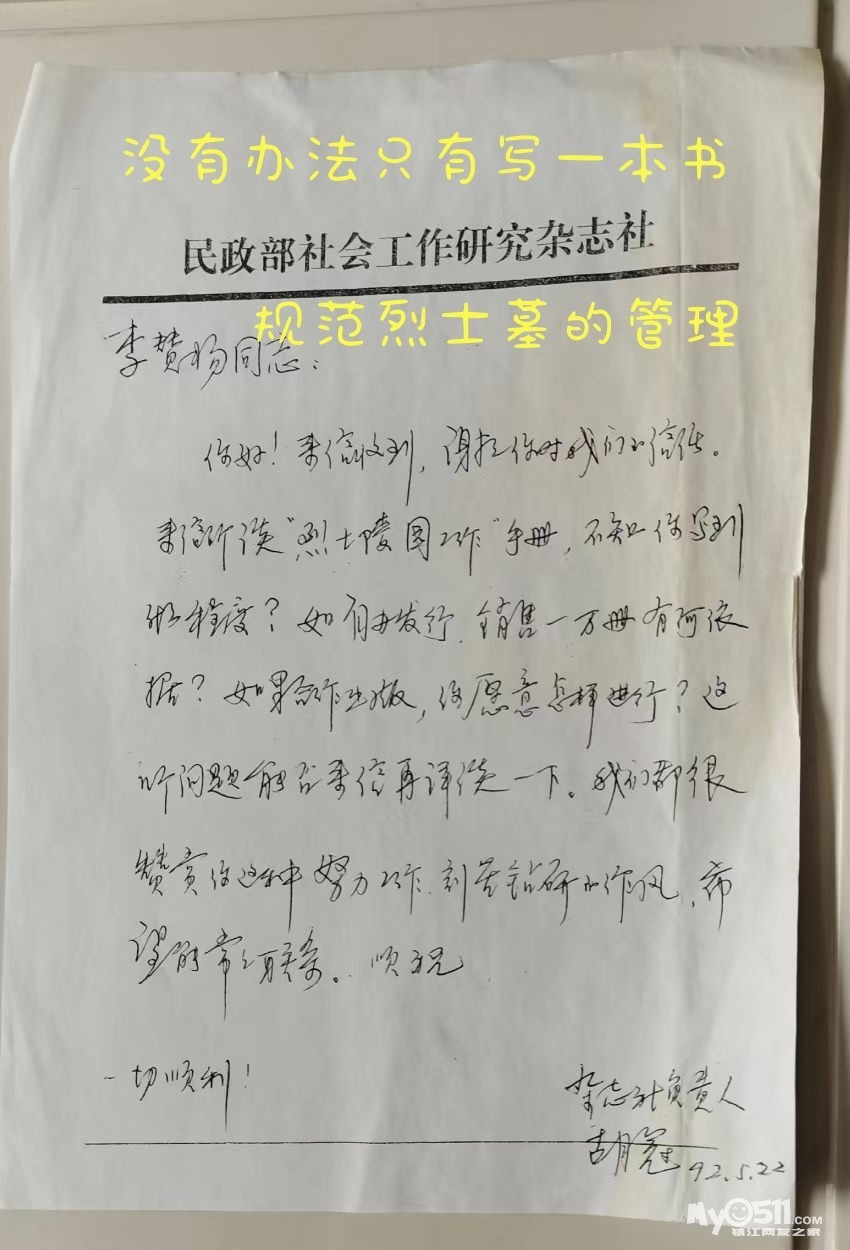 没有办法只有写一本书
民政部社会工作研究杂志社
规范烈士墓的管理
李赞扬同志：
你好！来信收到，谢谢你对我们的信任。
来信所谈“烈士陵园工作”手册，不知你写到
什么程度？如自办发行，销售一万册有何依
据？如果合作出版，你愿意怎样进行？这
些问题能否来信再详谈一下。我们都很
赞赏你这种努力工作，刻苦钻研的作风，希
望能常常联系。顺祝
一切顺利！
杂志社负责人
胡 92.5.22
My0511.COM
镇江网友之家